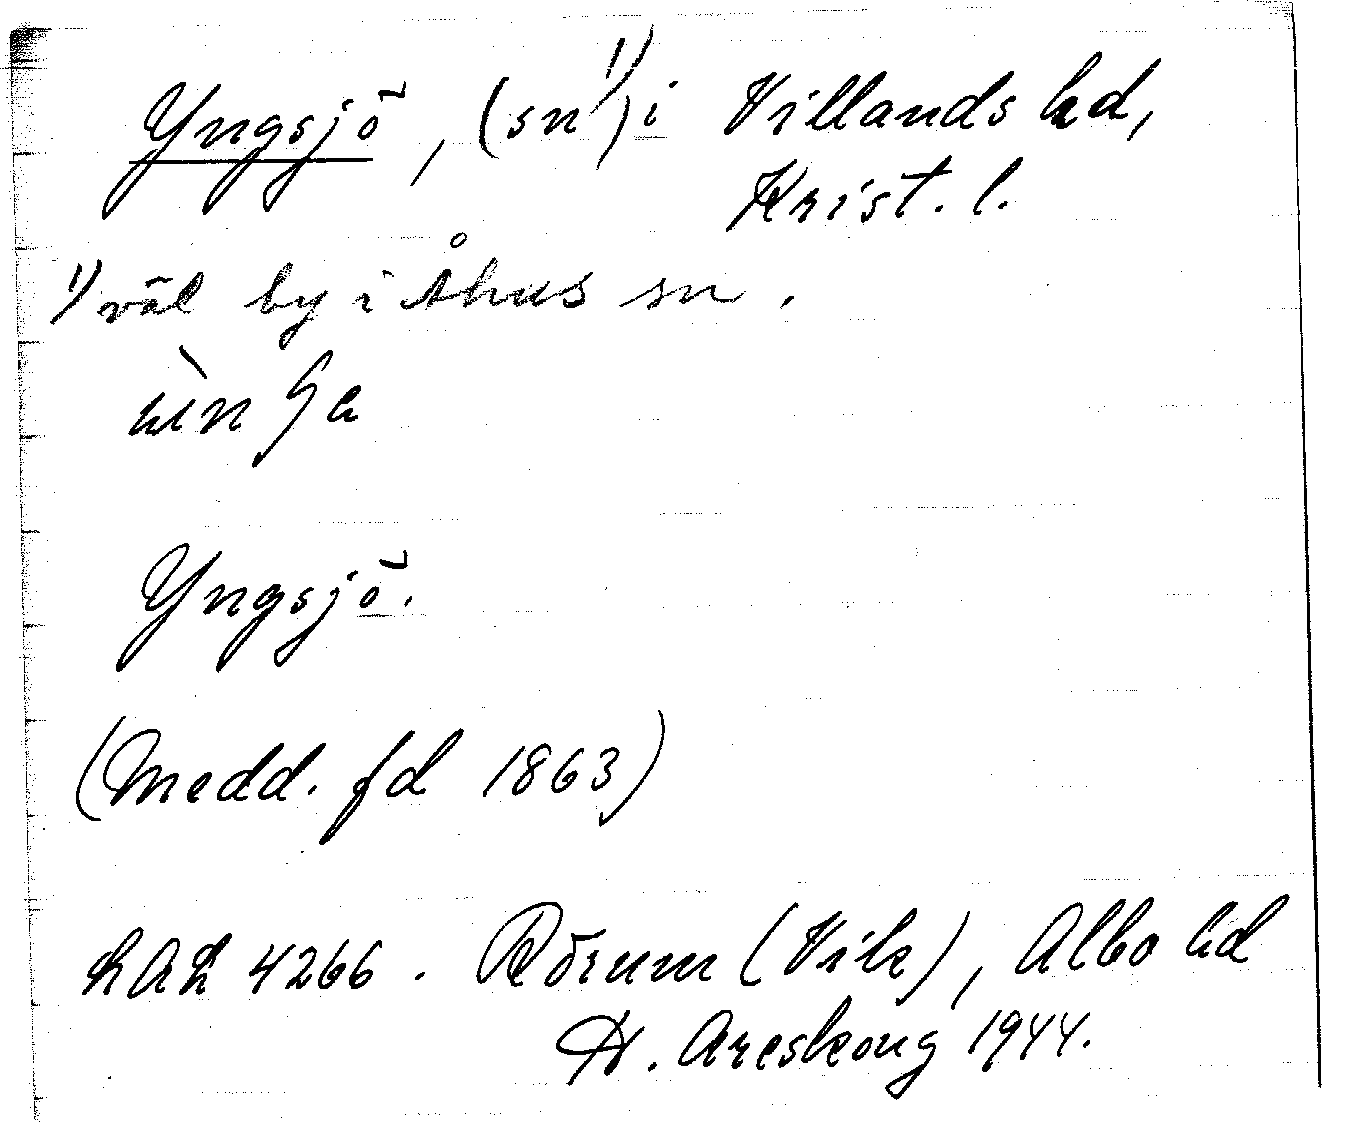 Yngsjö, (sn¹⁾) i Villands hd,
Krist. l.
¹⁾ väl by i Åhus sn.
Yngsjö.
(Medd. fd 1863)
LAL 4266. Rörum (Vik), Albo hd
H. Areskoug 1944.